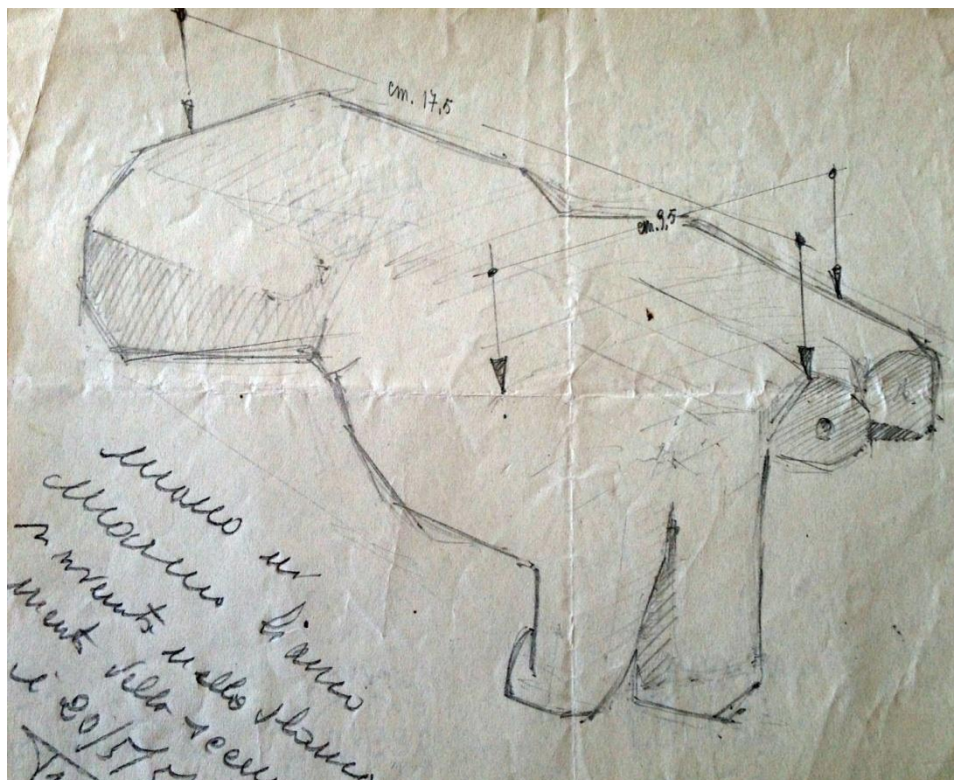 cm. 17,5
cm. 9,5
Mano in
Marmo bianco
rinvenuta nello sbanca
mento della
il 20/5/